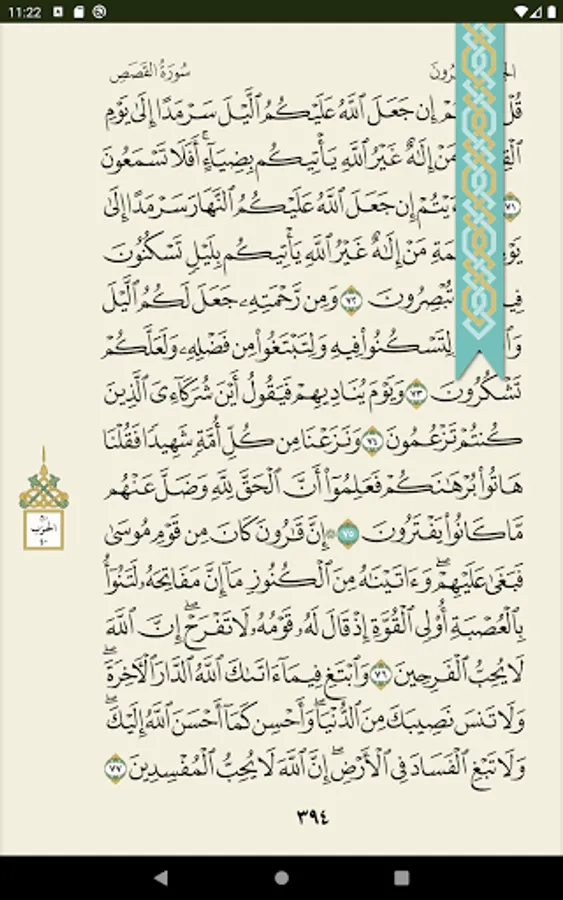 11:22
سُورَةُ القَصَصِ
قُلْ إِن جَعَلَ ٱللَّهُ عَلَيْكُمُ ٱلَّيْلَ سَرْمَدًا إِلَىٰ يَوْمِ
مَنْ إِلَٰهٌ غَيْرُ ٱللَّهِ يَأْتِيكُم بِضِيَآءٍ ۖ أَفَلَا تَسْمَعُونَ
٧١ إِن جَعَلَ ٱللَّهُ عَلَيْكُمُ ٱلنَّهَارَ سَرْمَدًا إِلَىٰ
مَنْ إِلَٰهٌ غَيْرُ ٱللَّهِ يَأْتِيكُم بِلَيْلٍ تَسْكُنُونَ
تُبْصِرُونَ ٧٢ وَمِن رَّحْمَتِهِۦ جَعَلَ لَكُمُ ٱلَّيْلَ
لِتَسْكُنُوا۟ فِيهِ وَلِتَبْتَغُوا۟ مِن فَضْلِهِۦ وَلَعَلَّكُمْ
تَشْكُرُونَ ٧٣ وَيَوْمَ يُنَادِيهِمْ فَيَقُولُ أَيْنَ شُرَكَآءِىَ ٱلَّذِينَ
كُنتُمْ تَزْعُمُونَ ٧٤ وَنَزَعْنَا مِن كُلِّ أُمَّةٍ شَهِيدًا فَقُلْنَا
هَاتُوا۟ بُرْهَٰنَكُمْ فَعَلِمُوٓا۟ أَنَّ ٱلْحَقَّ لِلَّهِ وَضَلَّ عَنْهُم
مَّا كَانُوا۟ يَفْتَرُونَ ٧٥ ۞ إِنَّ قَٰرُونَ كَانَ مِن قَوْمِ مُوسَىٰ
فَبَغَىٰ عَلَيْهِمْ ۖ وَءَاتَيْنَٰهُ مِنَ ٱلْكُنُوزِ مَآ إِنَّ مَفَاتِحَهُۥ لَتَنُوٓأُ
بِٱلْعُصْبَةِ أُو۟لِى ٱلْقُوَّةِ إِذْ قَالَ لَهُۥ قَوْمُهُۥ لَا تَفْرَحْ ۖ إِنَّ ٱللَّهَ
لَا يُحِبُّ ٱلْفَرِحِينَ ٧٦ وَٱبْتَغِ فِيمَآ ءَاتَىٰكَ ٱللَّهُ ٱلدَّارَ ٱلْءَاخِرَةَ ۖ
وَلَا تَنسَ نَصِيبَكَ مِنَ ٱلدُّنْيَا ۖ وَأَحْسِن كَمَآ أَحْسَنَ ٱللَّهُ إِلَيْكَ ۖ
وَلَا تَبْغِ ٱلْفَسَادَ فِى ٱلْأَرْضِ ۖ إِنَّ ٱللَّهَ لَا يُحِبُّ ٱلْمُفْسِدِينَ ٧٧
الحزب
٤٠
٣٩٤